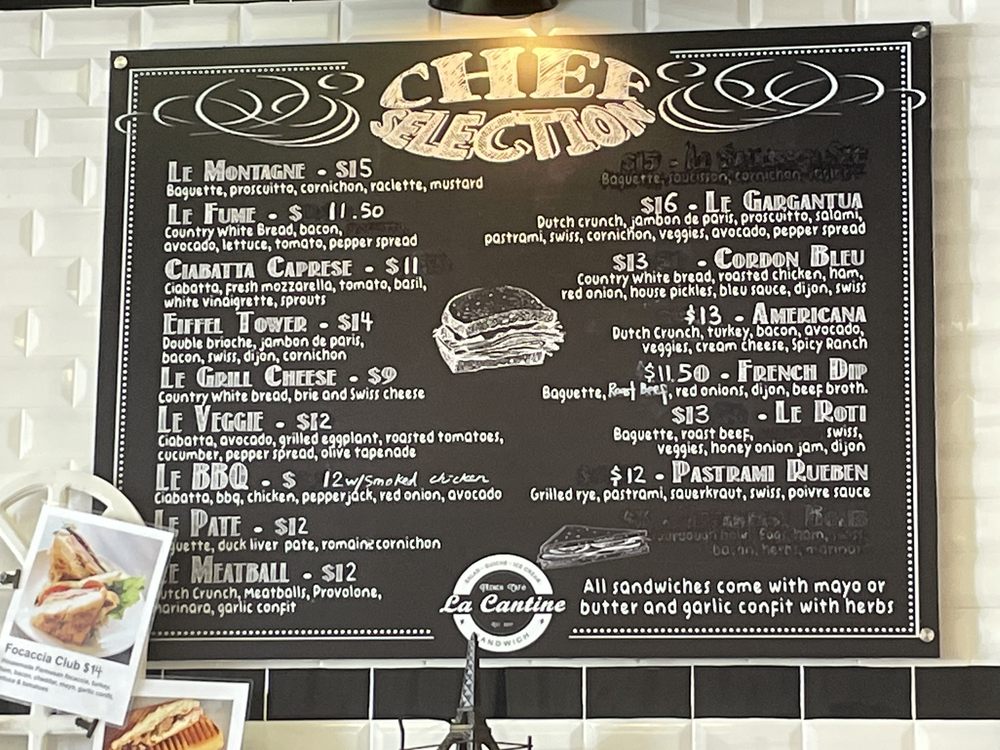 CHEF
SELECTION
LE MONTAGNE - $15
Baguette, proscuitto, cornichon, raclette, mustard
LE FUME - $ 11.50
Country white Bread, bacon,
avocado, lettuce, tomato, pepper spread
CIABATTA CAPRESE - $11
Ciabatta, fresh mozzarella, tomato, basil,
white vinaigrette, sprouts
EIFFEL TOWER - $14
Double brioche, jambon de paris,
bacon, swiss, dijon, cornichon
LE GRILL CHEESE - $9
Country white bread, brie and Swiss cheese
LE VEGGIE - $12
Ciabatta, avocado, grilled eggplant, roasted tomatoes,
cucumber, pepper spread, olive tapenade
LE BBQ - $ 12 w/smoked chicken
Ciabatta, bbq, chicken, pepperjack, red onion, avocado
LE PATE - $12
duck liver pate, romaine cornichon
MEATBALL - $12
Crunch, Meatballs, Provolone,
garlic confit
$15 -
Baguette, saucisson, cornichon,
$16 - LE GARGANTUA
Dutch crunch, jambon de paris, proscuitto, salami,
pastrami, swiss, cornichon, veggies, avocado, pepper spread
$13 - CORDON BLEU
Country white bread, roasted chicken, ham,
red onion, house pickles, bleu sauce, dijon, swiss
$13 - AMERICANA
Dutch Crunch, turkey, bacon, avocado,
veggies, cream cheese, Spicy Ranch
$11.50 - FRENCH DIP
Baguette, Roast Beef, red onions, dijon, beef broth.
$13 - LE ROTI
Baguette, roast beef, swiss,
veggies, honey onion jam, dijon
$12 - PASTRAMI RUEBEN
Grilled rye, pastrami, sauerkraut, swiss, poivre sauce
egg, ham,
bacon, herbs,
All sandwiches come with mayo or
butter and garlic confit with herbs
SALAD - QUICHE - ICE CREAM
FRENCH CAFE
La Cantine
SANDWICH
Focaccia Club $14